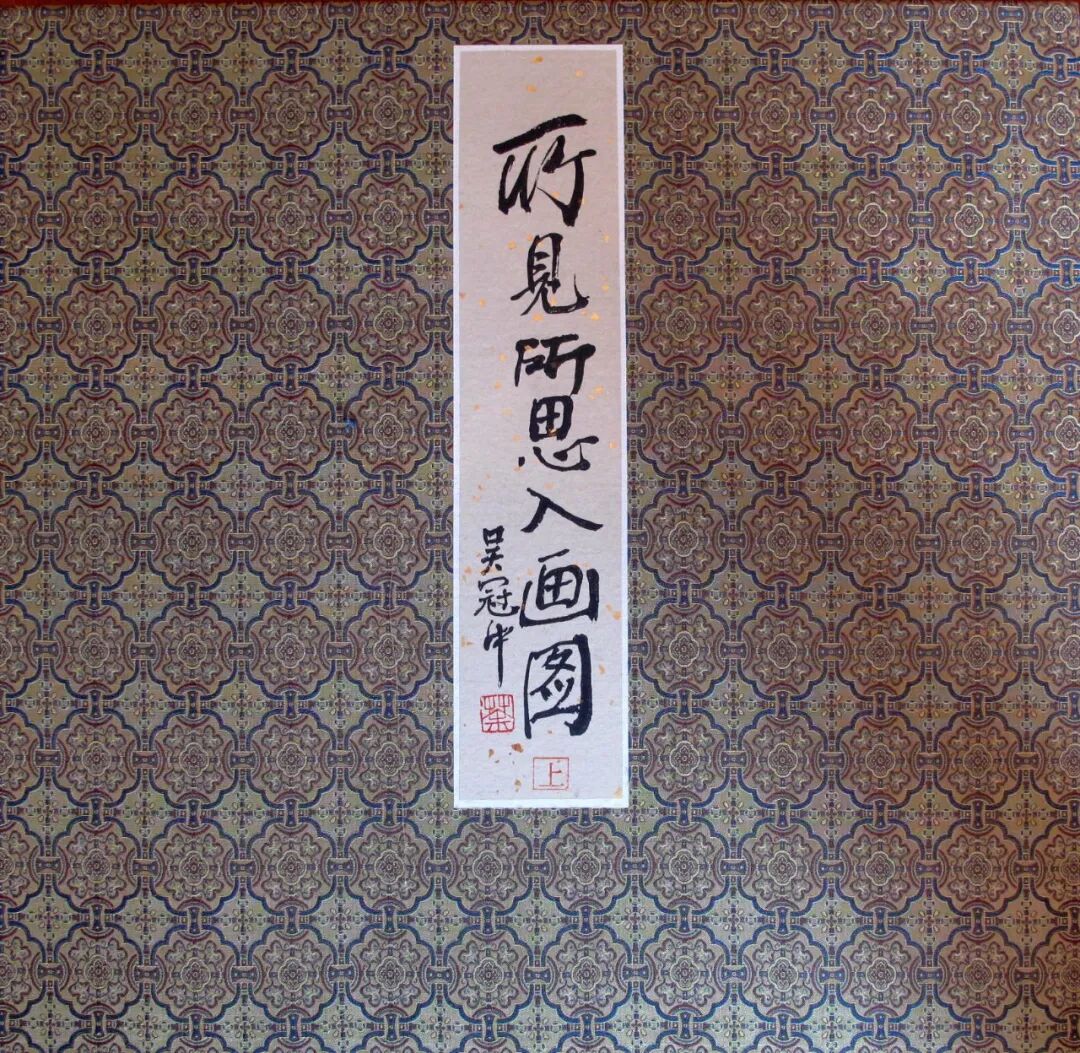 所见所思入画图
吴冠中
荼
上